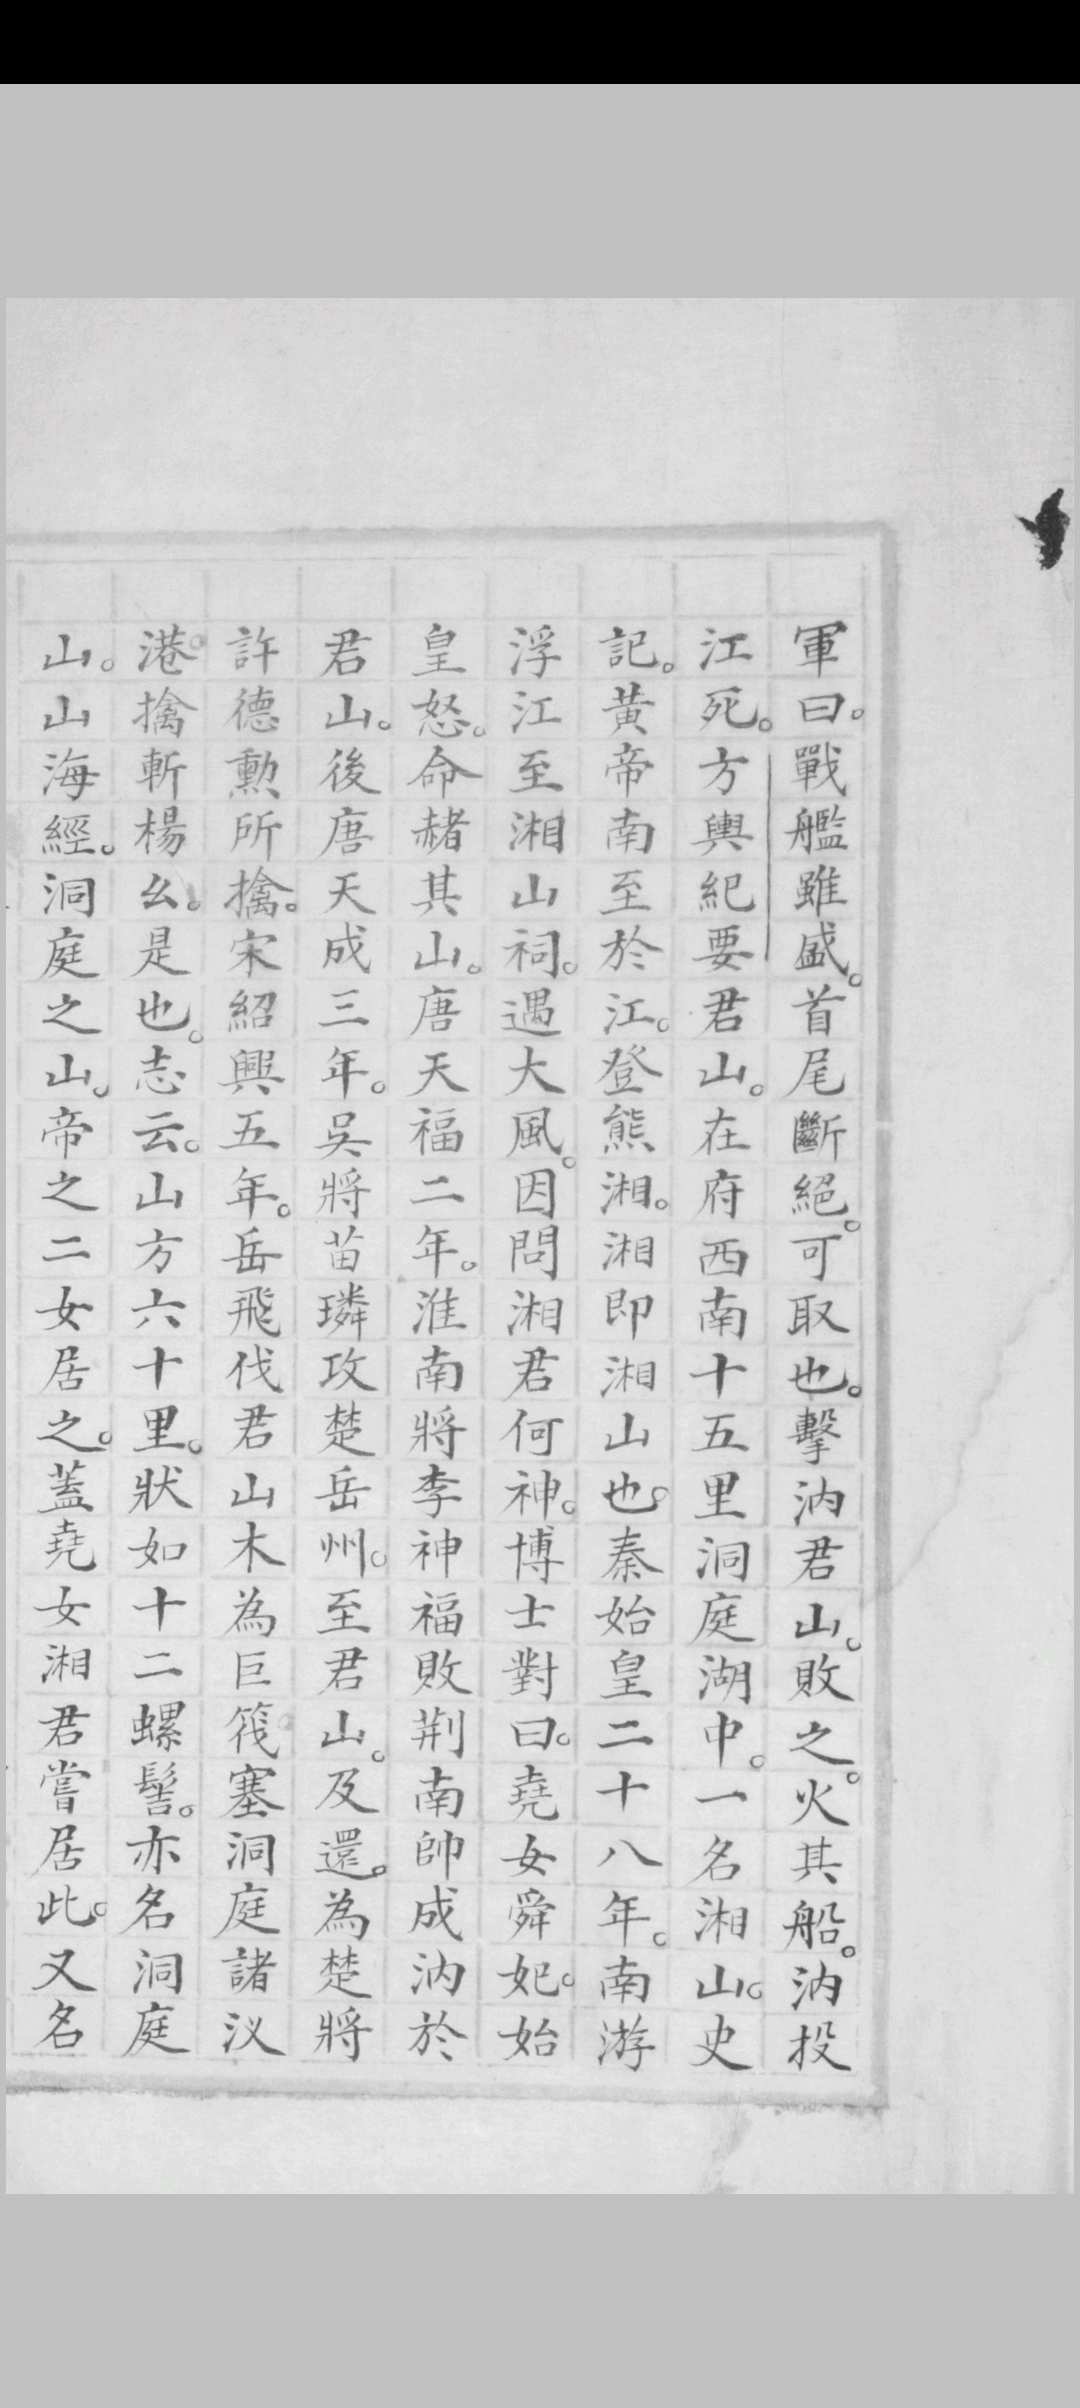 軍曰。戰艦雖盛。首尾斷絕。可取也。擊汭君山。敗之。火其船。汭投
江死。方輿紀要君山。在府西南十五里洞庭湖中。一名湘山。史
記。黃帝南至於江。登熊湘。湘即湘山也。秦始皇二十八年。南游
浮江至湘山祠。遇大風。因問湘君何神。博士對曰。堯女舜妃。始
皇怒。命赭其山。唐天福二年。淮南將李神福敗荆南帥成汭於
君山。後唐天成三年。吳將苗璘攻楚岳州。至君山。及還。為楚將
許德勲所擒。宋紹興五年。岳飛伐君山木為巨筏。塞洞庭諸汊
港。擒斬楊么。是也。志云。山方六十里。狀如十二螺髻。亦名洞庭
山。山海經。洞庭之山。帝之二女居之。蓋堯女湘君嘗居此。又名